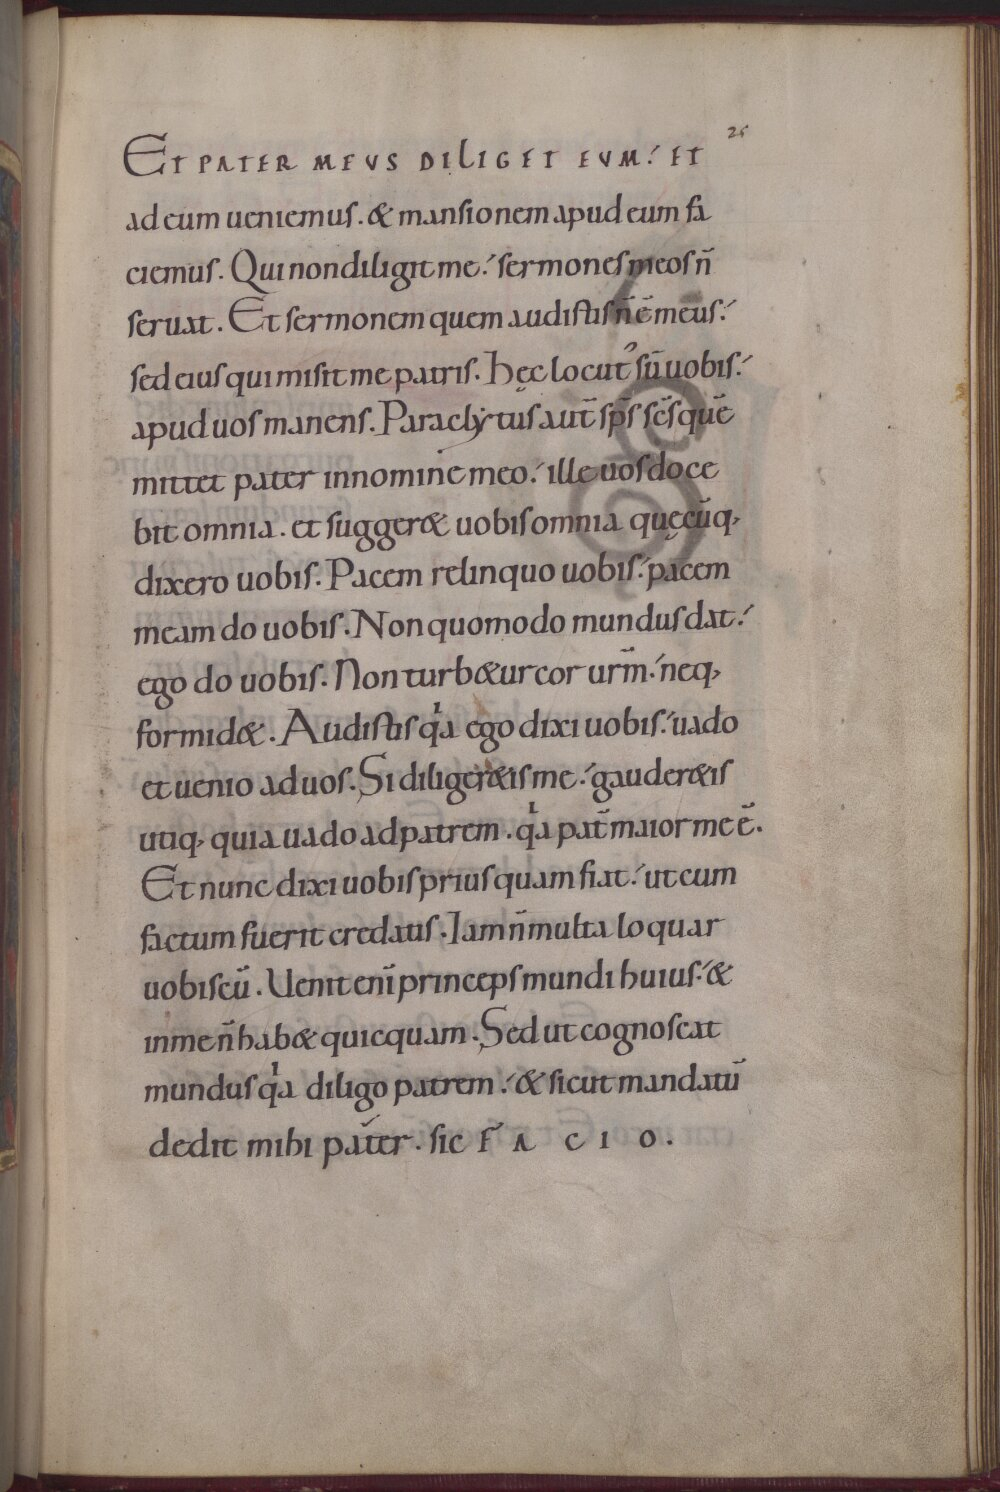 25
Et pater meus diliget eum. et
ad eum ueniemus. & mansionem apud eum fa
ciemus. Qui non diligit me. sermones meos n̄
seruat. Et sermonem quem audistis n̄ ē meus.
sed eius qui misit me patris. Hęc locutꝰ sū uobis.
apud uos manens. Paraclytus aut̄ sp̄s sc̄s quē
mittet pater in nomine meo. ille uos doce
bit omnia. et sugger& uobis omnia quęcūq;
dixero uobis. Pacem relinquo uobis. pacem
meam do uobis. Non quomodo mundus dat.
ego do uobis. Non turb&ur cor ur̄m. neq;
formid&. Audistis qͥa ego dixi uobis. uado
et uenio ad uos. Si diliger&is me. gauder&is
utiq; quia uado ad patrem. qͥa pat̄ maior me ē.
Et nunc dixi uobis prius quam fiat. ut cum
factum fuerit credatis. Iam n̄ multa loquar
uobiscū. Uenit enī princeps mundi huius. &
in me n̄ hab& quicquam. Sed ut cognoscat
mundus qͥa diligo patrem. & sicut mandatū
dedit mihi pat̄er. sic facio.